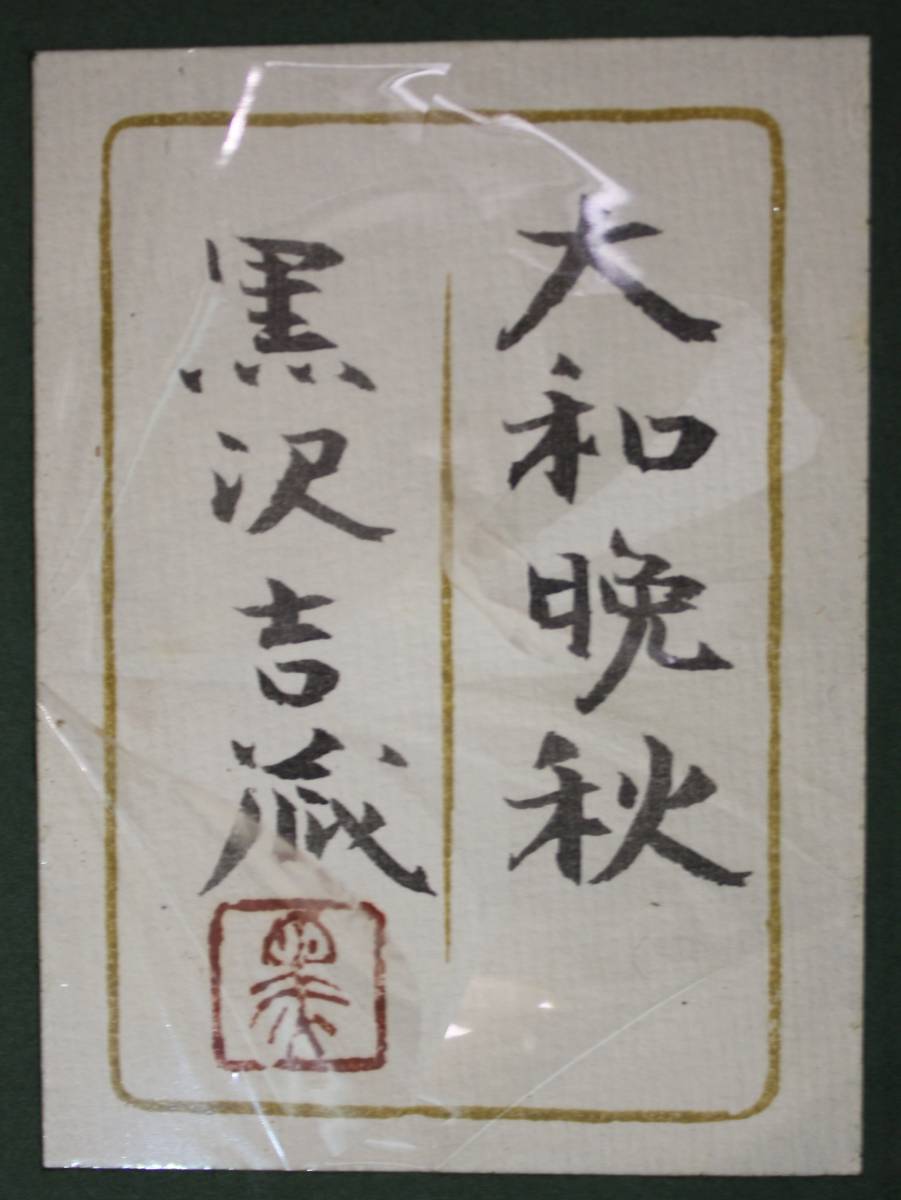 大和晩秋
黒沢吉蔵